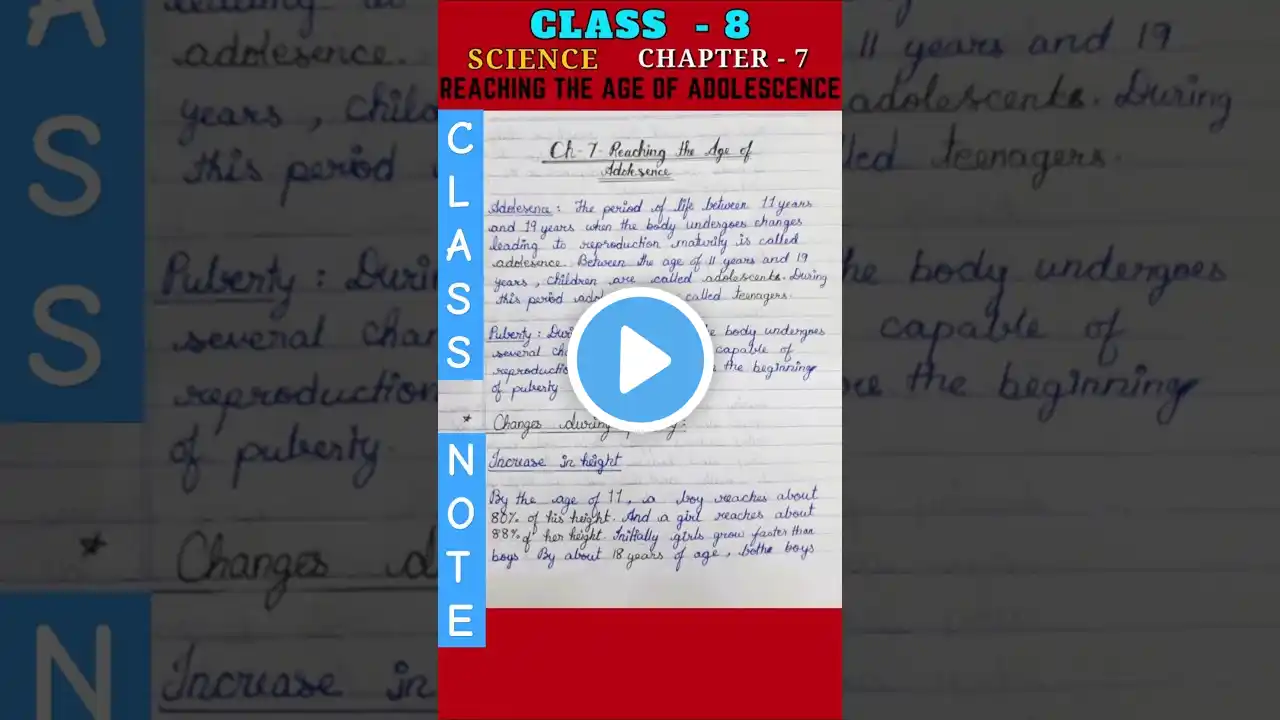 CLASS - 8
SCIENCE CHAPTER - 7
REACHING THE AGE OF ADOLESCENCE
CLASS
NOTE
Ch-7 Reaching the Age of
Adolesence
Adolesence : The period of life between 11 years
and 19 years when the body undergoes changes
leading to reproduction maturity is called
adolesence. Between the age of 11 years and 19
years, children are called adolescents. During
this period called teenagers.
Puberty : body undergoes
several capable of
the beginning
of puberty
* Changes during
Increase in height
By the age of 11, a boy reaches about
80% of his height. And a girl reaches about
88% of her height. Initially girls grow faster than
boys By about 18 years of age, bothe boys
adolesence.
years,
this period
Puberty : Duri
several chan
reproduction
of puberty.
* Changes
Increase in
11 years and 19
adolescents. During
led teenagers.
he body undergoes
capable of
the beginning